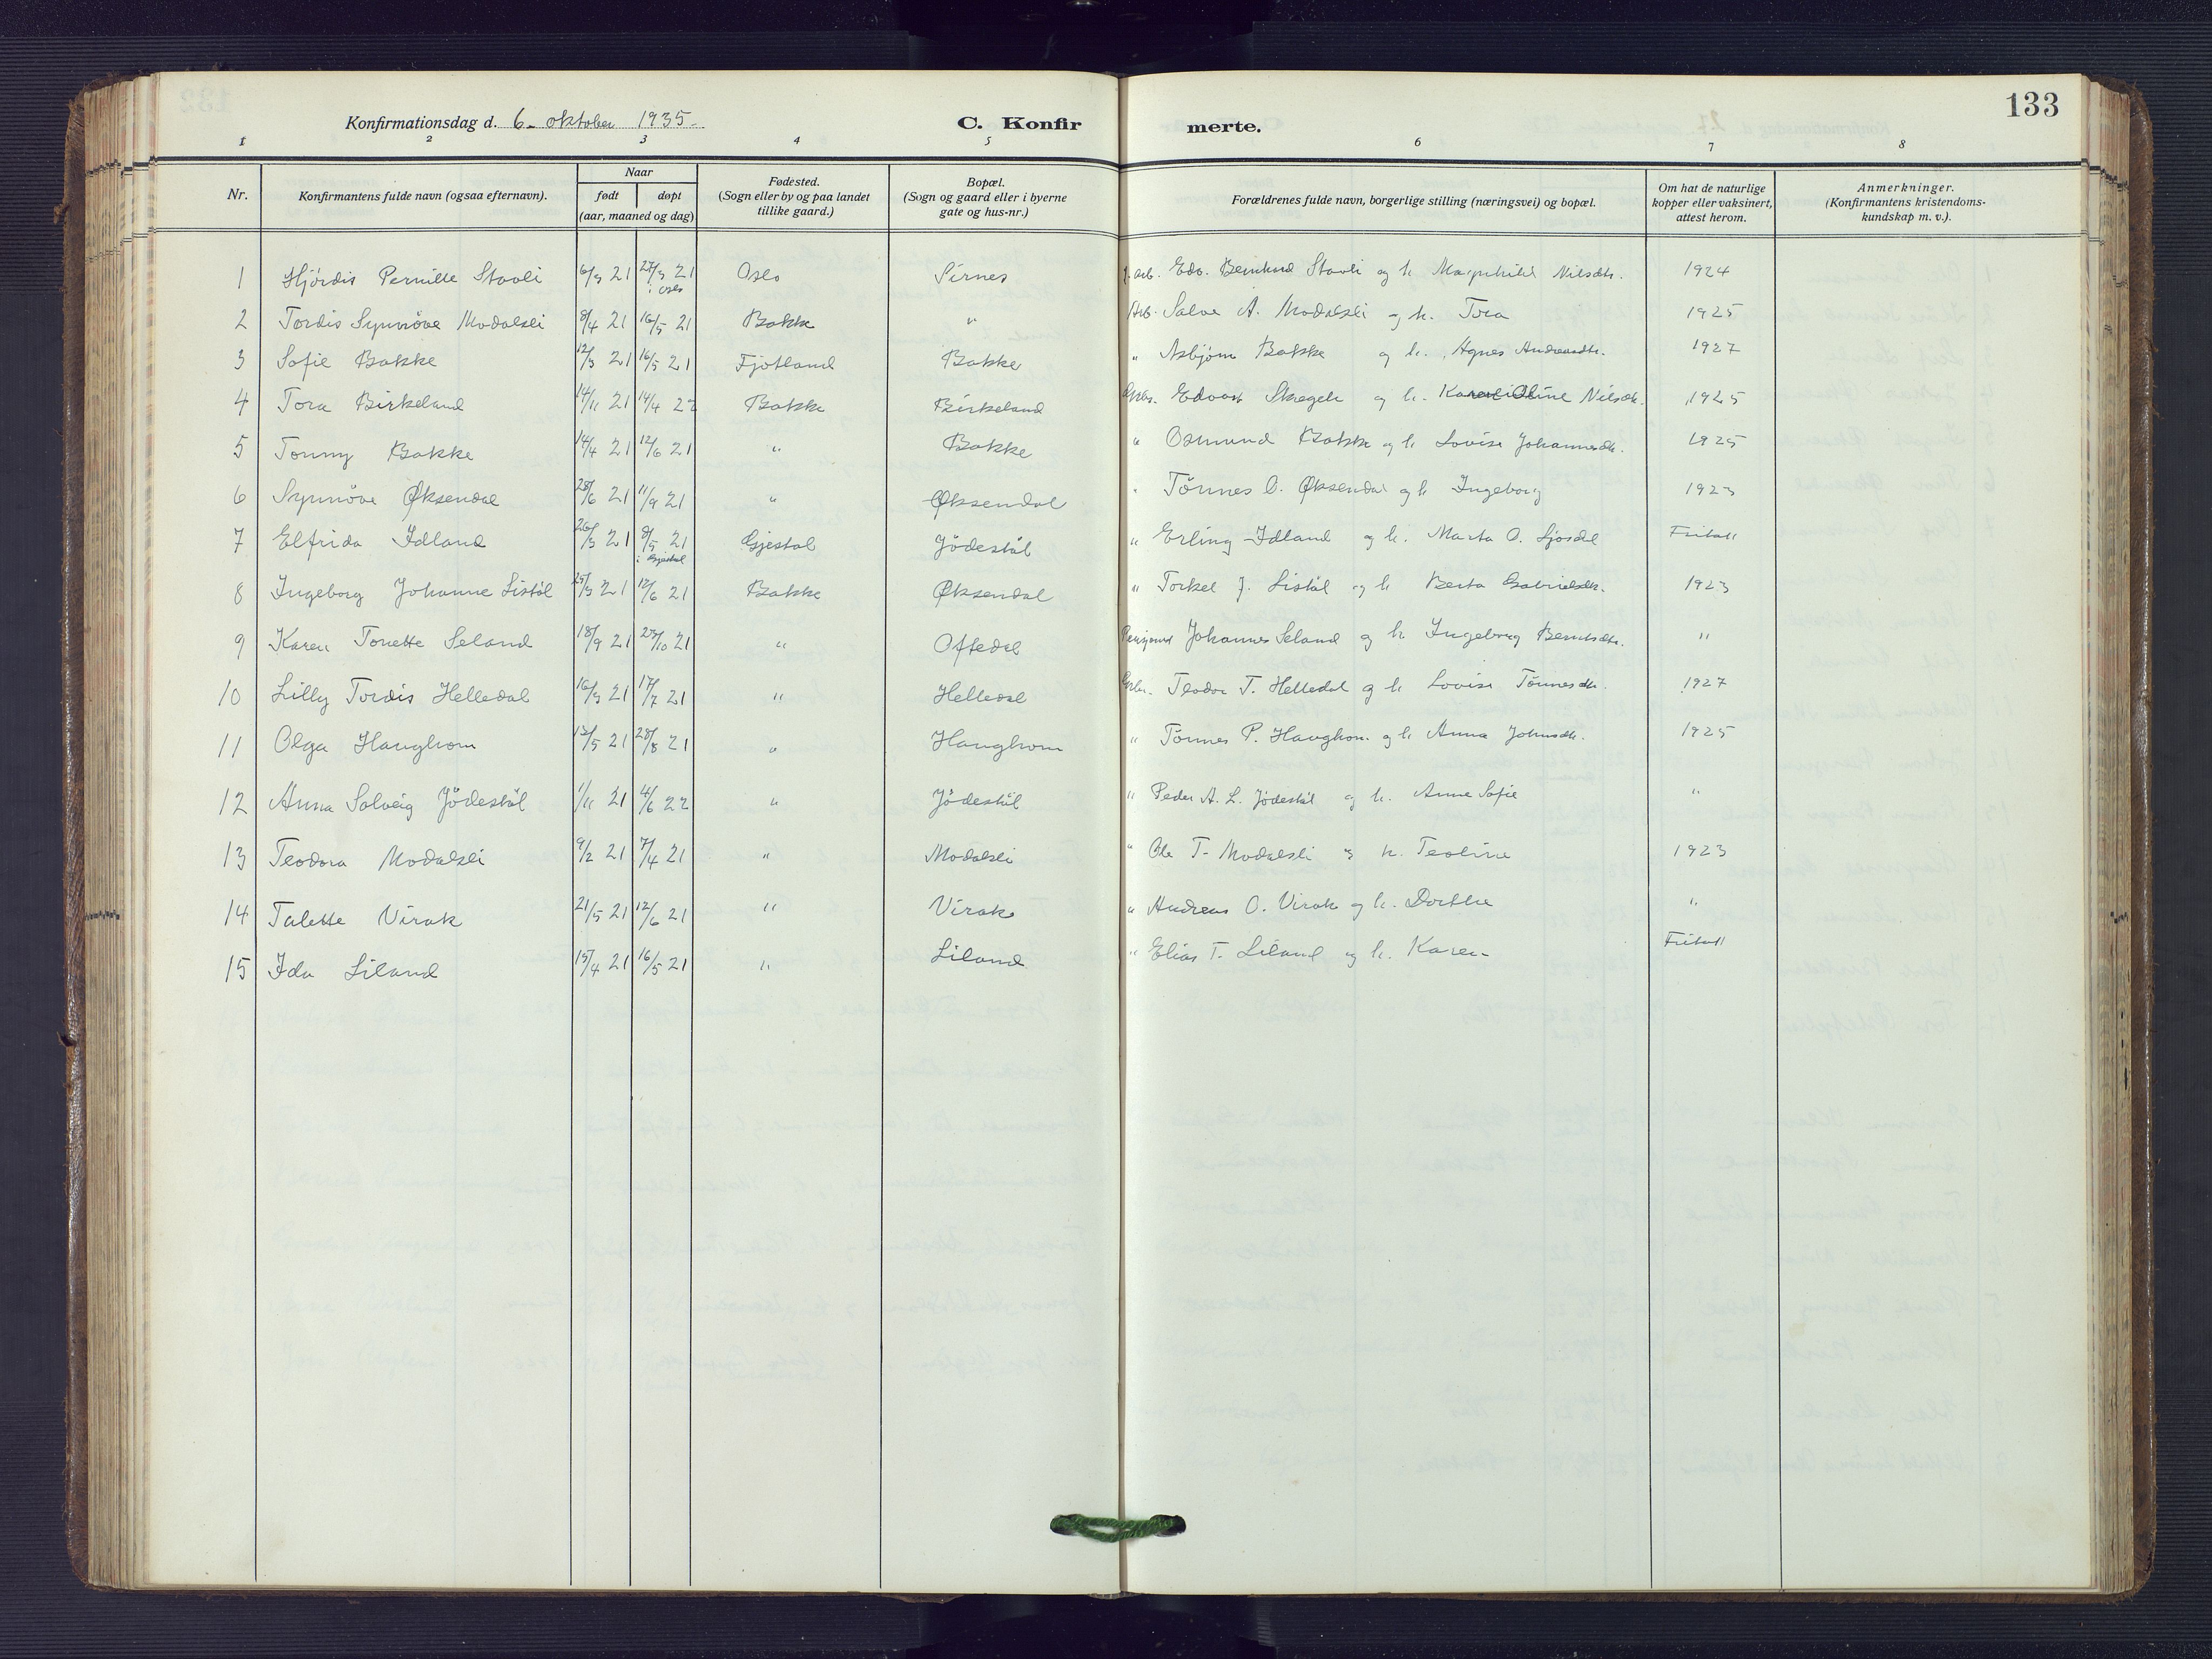 133
Konfirmationsdag d. 6. oktober 1935.
C. Konfir merte.
1 2 3 4 5 6 7 8
Nr. Konfirmantens fulde navn (ogsaa efternavn). Naar født døpt (aar, maaned og dag) Fødested. (Sogn eller by og paa landet tillike gaard.) Bopæl. (Sogn og gaard eller i byerne gate og hus-nr.) Forældrenes fulde navn, borgerlige stilling (næringsvei) og bopæl. Om hat de naturlige kopper eller vaksinert, attest herom. Anmerkninger. (Konfirmantens kristendoms-kundskap m. v.).
1 Hjördis Pernille Stovli 6/3 21 27/3 21 i Oslo Oslo Sirnes Edv. Stovli og h. Magnhild Nilsdtr. 1924
2 Tordis Synnöve Modalsli 8/4 21 16/5 21 Bakke " Arb. Salve A. Modalsli og h. Tora 1925
3 Sofie Bakke 12/3 21 16/5 21 Fjotland Bakke " Asbjørn Bakke og h. Agnes Andreasdtr. 1927
4 Tora Birkeland 14/11 21 14/4 22 Bakke Birkeland Gbr. Edvart Skregeli og h. Nilsdtr. 1925
5 Tonny Bakke 14/4 21 12/6 21 " Bakke " Osmund Bakke og h. Lovise Johannesdtr. 1925
6 Synnöve Øksendal 28/6 21 11/9 21 " Øksendal " Tönnes O. Øksendal og h. Ingeborg 1923
7 Elfrida Idland 26/3 21 8/5 21 i Gjestal Gjestal Jödestöl " Erling Idland og h. Marta O. Sjösdal Fritatt
8 Ingeborg Johanne Listöl 25/3 21 12/6 21 Bakke Øksendal " Torkel J. Listöl og h. Berta Gabrielsdtr. 1923
9 Karen Tonette Seland 18/9 21 23/10 21 " Oftedal Johannes Seland og h. Ingeborg Berntsdtr. "
10 Lilly Tordis Helledal 16/3 21 17/7 21 " Helledal Gbr. Teodor T. Helledal og h. Lovise Tönnesdtr. 1927
11 Olga Haughom 13/5 21 28/8 21 " Haughom " Tönnes P. Haughom og h. Anna Johnsdtr. 1925
12 Anna Solveig Jödestöl 1/11 21 4/6 22 " Jödestöl " Peder A. L. Jödestöl og h. Anne Sofie "
13 Teodora Modalsli 9/2 21 7/4 21 " Modalsli " Ole T. Modalsli og h. Teoline 1923
14 Talette Virak 21/5 21 12/6 21 " Virak " Andreas O. Virak og h. Dorthe "
15 Ida Liland 15/4 21 16/5 21 " Liland " Elias T. Liland og h. Karen Fritatt